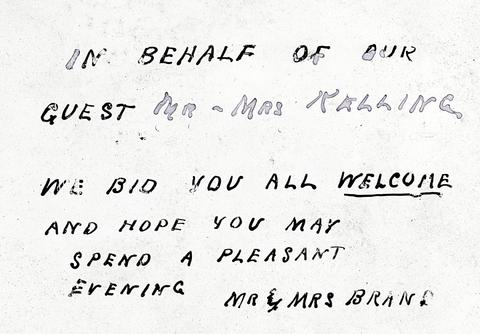 IN BEHALF OF OUR
GUEST MR - MRS KELLING
WE BID YOU ALL WELCOME
AND HOPE YOU MAY
SPEND A PLEASANT
EVENING MR & MRS BRAND